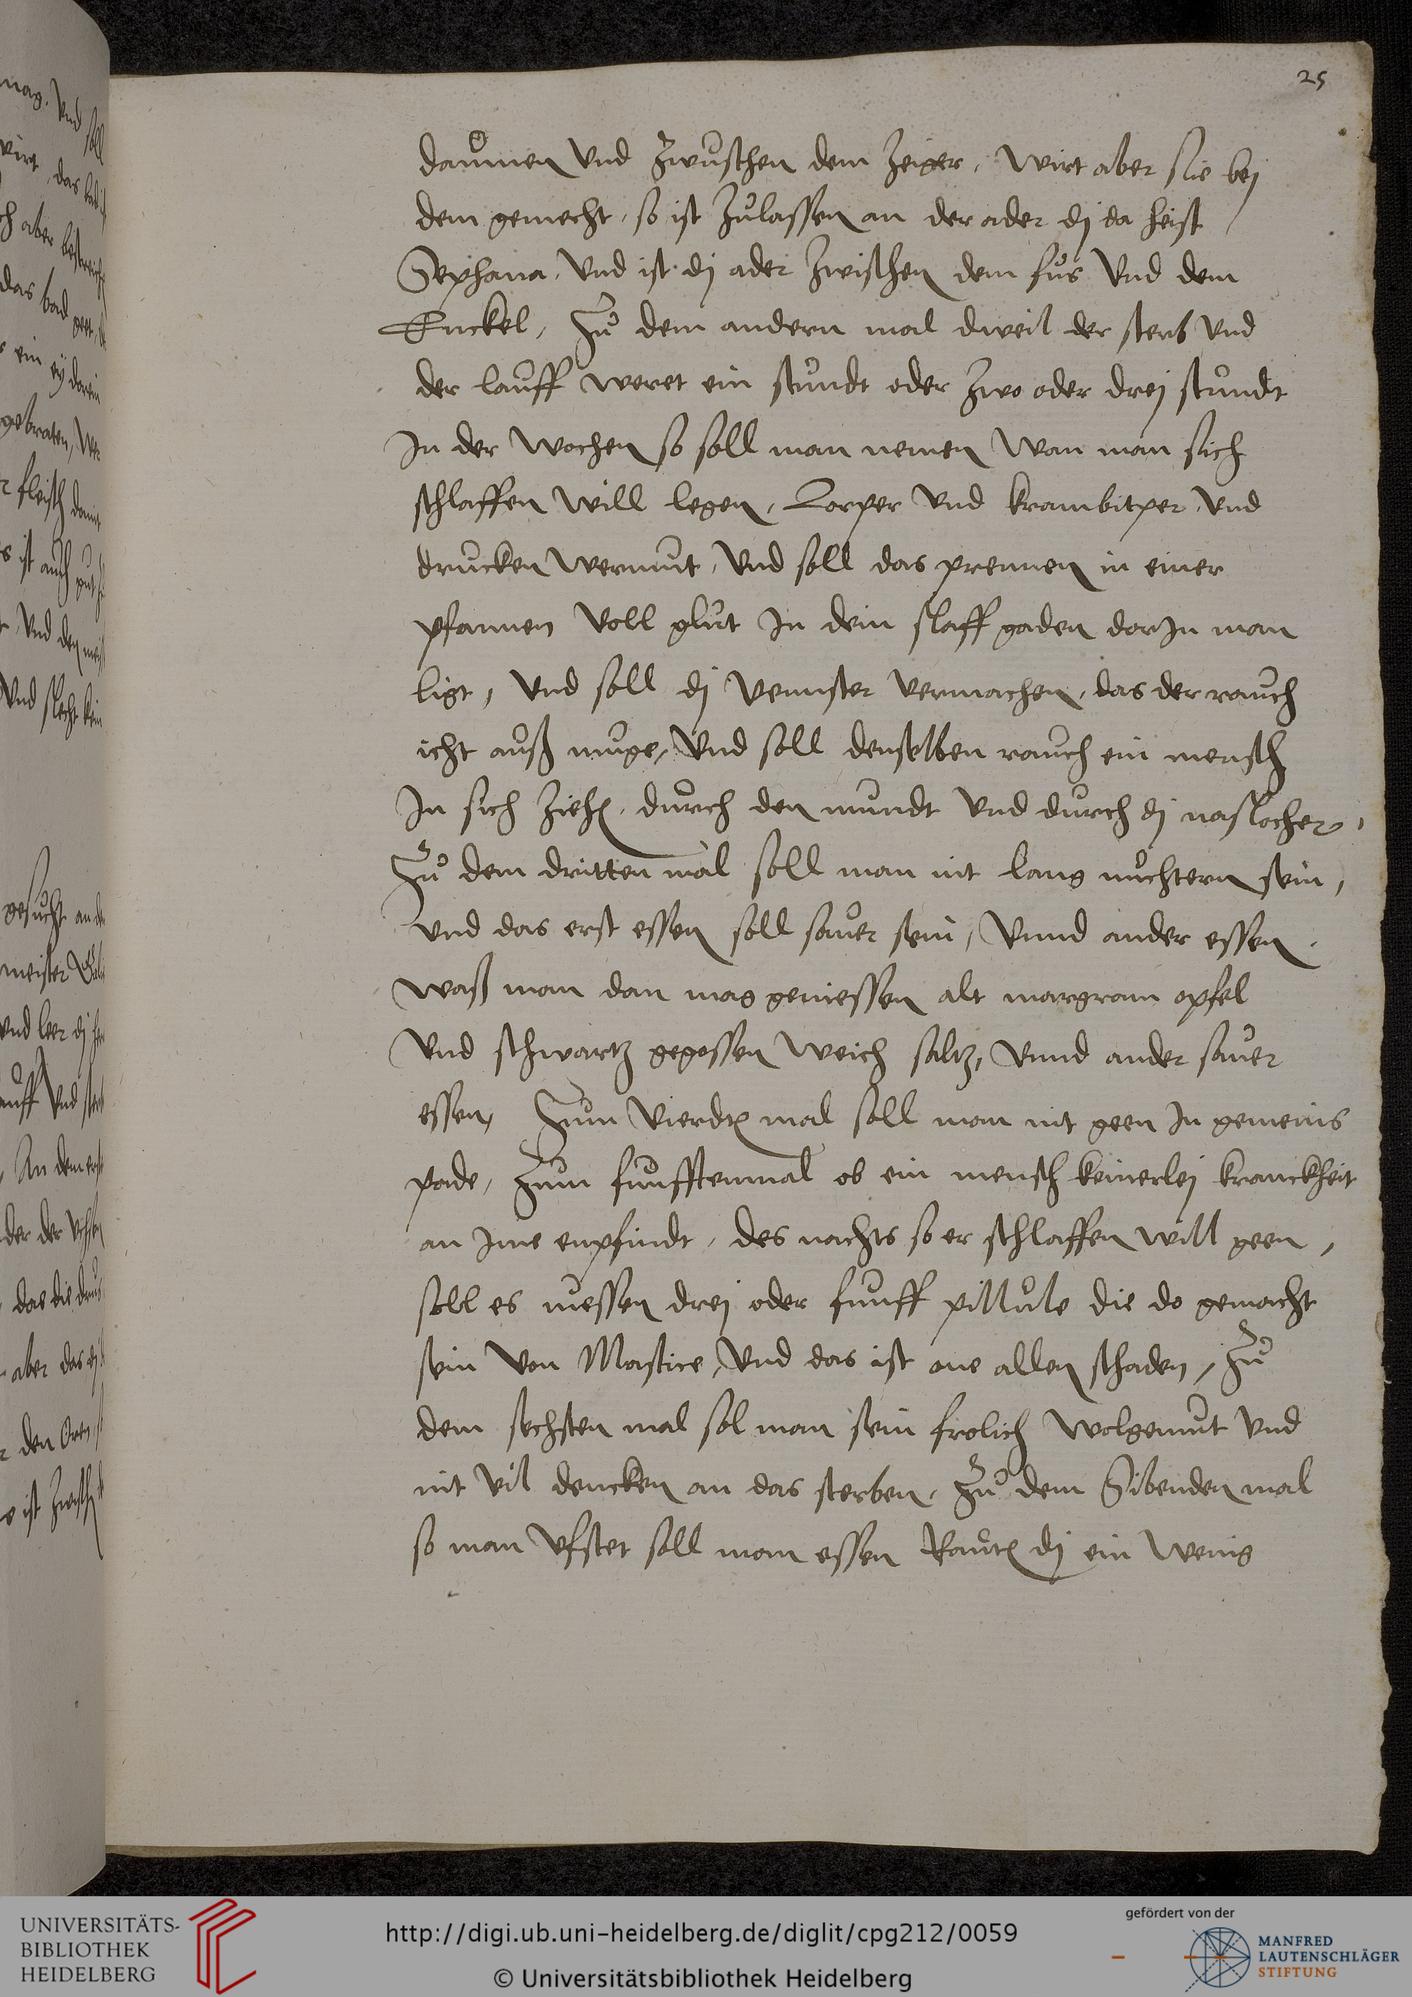 25
daumen vnd zwuschen dem zeiger, Wirt aber sie bej
dem gemecht, so ist zulassen an der ader dj da heist
Sephana, vnd ist dj ader zwischen dem fus vnd dem
Enckel, Zu dem andern mal dweil der sterb vnd
der lauff weret ein stundt oder zwo oder drej stundt
In der wochen so soll man nemen wan man sich
schlaffen will legen, Lorper vnd krambitper, vnd
drucken wermut, vnd soll das prennen in einer
pfannen voll glut In dem slaff gaden dorjn man
ligt, vnd soll dj vennster vermachen, das der rauch
icht auß muge, vnd soll denselben rauch ein mensch
In sich ziehen, durch den mundt vnd durch dj naslocher,
Zu dem dritten mal soll man nit lang nuchtern sein,
vnd das erst essen soll sauer sein, vnnd ander essen,
waß man dan mag geniessen alt margram opfel
vnd schwartz gegossen weich saltz, vnnd ander sauer
essen, Zum vierdten mal soll man nit geen In gemeins
pade, Zum funfftenmal ob ein mensch keinerlej kranckheit
an jme enpfindt, des nachts so er schlaffen will geen,
soll es niessen drej oder funff pillule die do gemacht
sein von Mastice, vnd das ist one allen schaden, Zu
dem sechsten mal sol man sein frolich wolgemut vnd
nit vil dencken an das sterben, Zu dem Sibenden mal
so man vfstet soll man essen Rauten dj ein wenig
UNIVERSITÄTS-
BIBLIOTHEK
HEIDELBERG
http://digi.ub.uni-heidelberg.de/diglit/cpg212/0059
© Universitätsbibliothek Heidelberg
gefördert von der
MANFRED
LAUTENSCHLÄGER
STIFTUNG